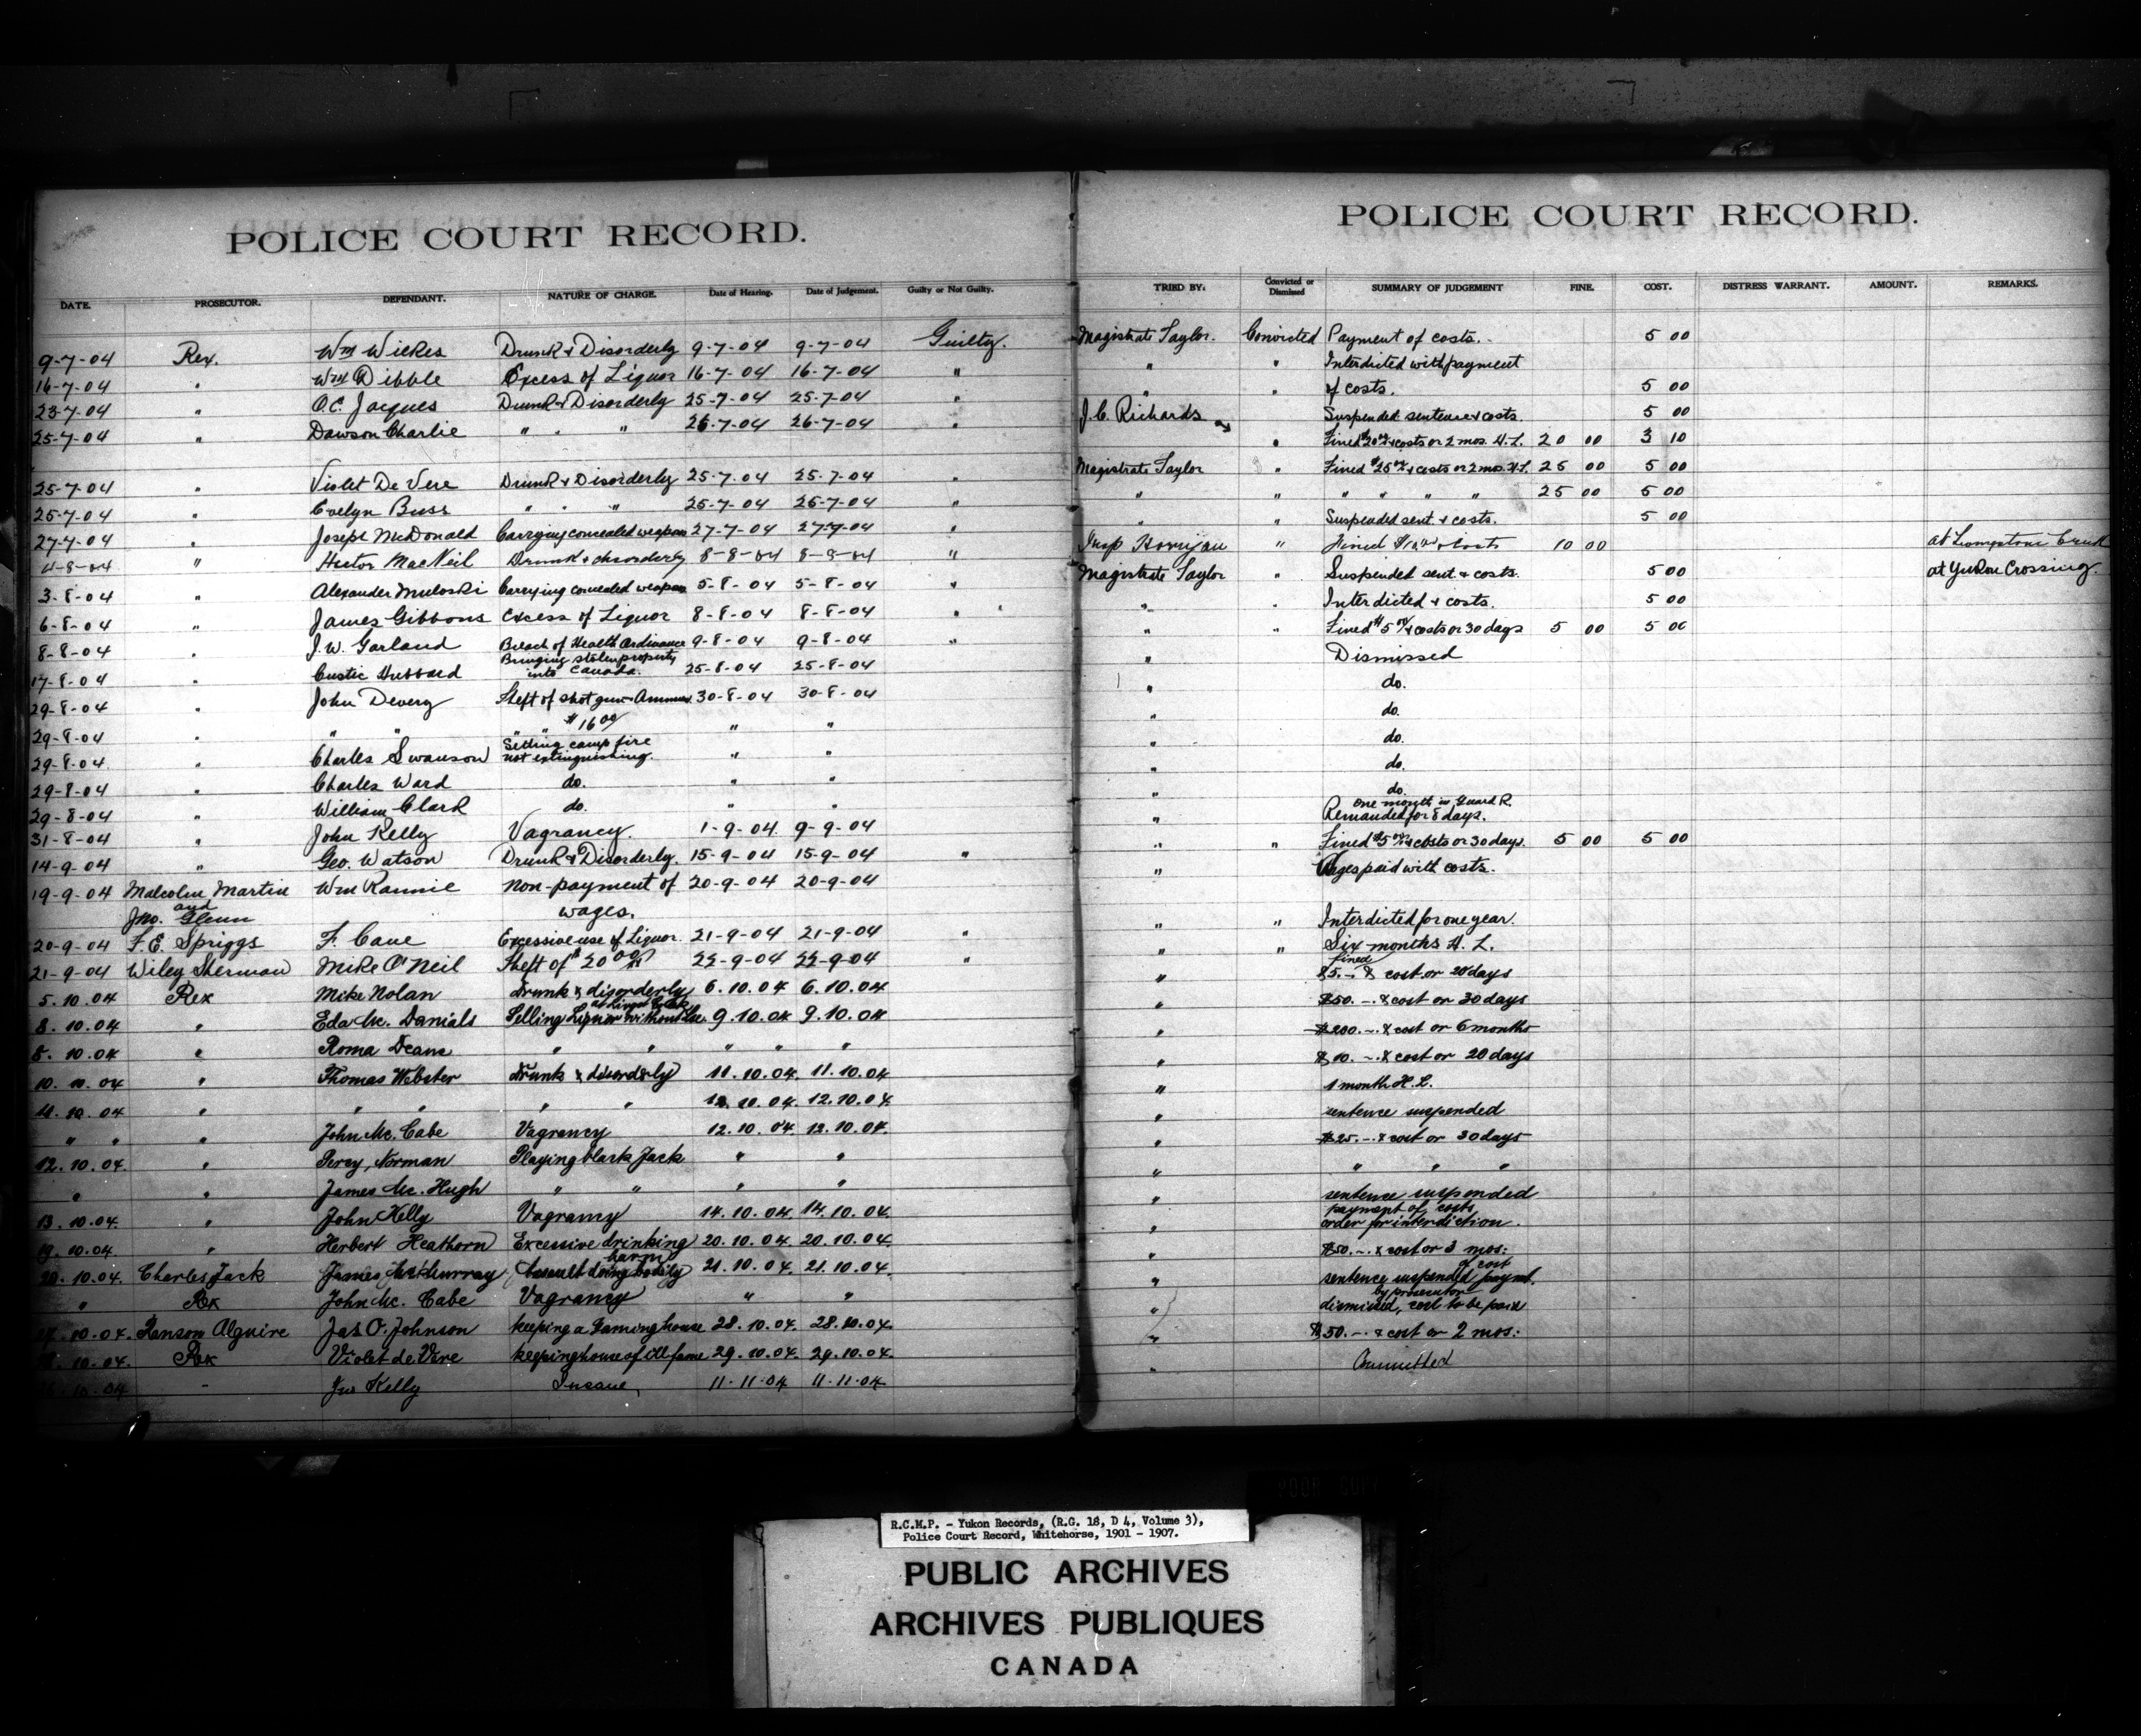 POLICE COURT RECORD.
DATE. PROSECUTOR. DEFENDANT. NATURE OF CHARGE. Date of Hearing. Date of Judgement. Guilty or Not Guilty.
9-7-04 Rex. Wm Wilkes Drunk & Disorderly 9-7-04 9-7-04 Guilty.
16-7-04 " Wm Dibble Excess of Liquor 16-7-04 16-7-04 "
23-7-04 " O.C. Jacques Drunk & Disorderly 25-7-04 25-7-04 "
25-7-04 " Dawson Charlie " " " 26-7-04 26-7-04 "
25-7-04 " Violet De Vere Drunk & Disorderly 25-7-04 25-7-04 "
25-7-04 " Evelyn Buss " " " 25-7-04 25-7-04 "
27-7-04 " Joseph McDonald Carrying concealed weapon 27-7-04 27-7-04 "
4-8-04 " Hector MacNeil Drunk & disorderly 8-8-04 8-8-04 "
3-8-04 " Alexander Muloski Carrying concealed weapon 5-8-04 5-8-04 "
6-8-04 " James Gibbons Excess of Liquor 8-8-04 8-8-04 "
8-8-04 " J.W. Garland Breach of Health Ordinance 9-8-04 9-8-04 "
17-8-04 " Custic Hubbard Bringing stolen property into Canada. 25-8-04 25-8-04
29-8-04 " John Devery Theft of shot gun & Ammun. 30-8-04 30-8-04
29-8-04 " " " " " $16 00 " "
29-8-04 " Charles Swanson Setting camp fire not extinguishing. " "
29-8-04 " Charles Ward do. " "
29-8-04 " William Clark do. " "
31-8-04 " John Kelly Vagrancy. 1-9-04 9-9-04
14-9-04 " Geo. Watson Drunk & Disorderly. 15-9-04 15-9-04 "
19-9-04 Malcolm Martin Wm Rannie Non-payment of 20-9-04 20-9-04
and Jno. Glenn wages.
20-9-04 F.E. Spriggs F. Cane Excessive use of Liquor. 21-9-04 21-9-04 "
21-9-04 Wiley Sherman Mike O'Neil Theft of $20 00 22-9-04 22-9-04 "
5.10.04 Rex Mike Nolan drunk & disorderly 6.10.04 6.10.04
8.10.04 " Eda Mc. Danials Selling Liquor without Lic. 9.10.04 9.10.04
8.10.04 " Roma Deans " " " " "
10.10.04 " Thomas Webster drunk & disorderly 11.10.04. 11.10.04
11.10.04 " " " " " 12.10.04. 12.10.04
" " " John Mc. Cabe Vagrancy 12.10.04. 12.10.04.
12.10.04. " Percy Norman Playing black Jack " "
" " James Mc. Hugh " " " "
13.10.04. " John Kelly Vagrancy 14.10.04. 14.10.04.
19.10.04. " Herbert Heathorn Excessive drinking 20.10.04. 20.10.04.
20.10.04. Charles Jack James McMurray Assault doing bodily harm 21.10.04. 21.10.04.
" Rex John Mc. Cabe Vagrancy " "
10.04. Ranson Alguire Jas O. Johnson keeping a Gaming house 28.10.04. 28.10.04.
10.04. Rex Violet de Vere keeping house of ill fame 29.10.04. 29.10.04.
10-04 " Jno Kelly Insane, 11-11-04 11-11-04
POLICE COURT RECORD.
TRIED BY: Convicted or Dismissed SUMMARY OF JUDGEMENT FINE. COST. DISTRESS WARRANT. AMOUNT. REMARKS.
Magistrate Taylor. Convicted Payment of costs. 5 00
" " Interdicted with payment
" " of costs. 5 00
J.C. Richards Suspended sentence & costs 5 00
" Fined $20 00 & costs or 2 mos. H.L. 20 00 3 10
Magistrate Taylor " Fined $25 00 & costs or 2 mos. H.L. 25 00 5 00
" " " " " " 25 00 5 00
" Suspended sent. & costs. 5 00
Insp Horrigan " Fined $10.00 & Costs 10 00 at Livingstone Creek
Magistrate Taylor " Suspended sent. & costs. 5 00 at Yukon Crossing.
" " Interdicted & costs. 5 00
" " Fined $5 00 & costs or 30 days 5 00 5 00
" Dismissed
" do.
" do.
" do.
" do.
" do.
" One month in Guard R. Remanded for 8 days.
" " Fined $5 00 & costs or 30 days. 5 00 5 00
" Wages paid with costs.
" " Interdicted for one year.
" " Six months H. L.
" fined $5.- & cost or 20 days
" $50.- & cost or 30 days
" $200.- & cost or 6 months
" $10.- & cost or 20 days
" 1 month H.L.
" sentence suspended
" $25.- & cost or 30 days
" " " "
" sentence suspended payment of costs
" order for interdiction.
" $50.- & cost or 3 mos:
" sentence suspended paymt. of cost
" dismissed, cost to be paid by prosecutor
" $50.- & cost or 2 mos:
" Committed
R.C.M.P. - Yukon Records, (R.G. 18, D 4, Volume 3),
Police Court Record, Whitehorse, 1901 - 1907.
PUBLIC ARCHIVES
ARCHIVES PUBLIQUES
CANADA